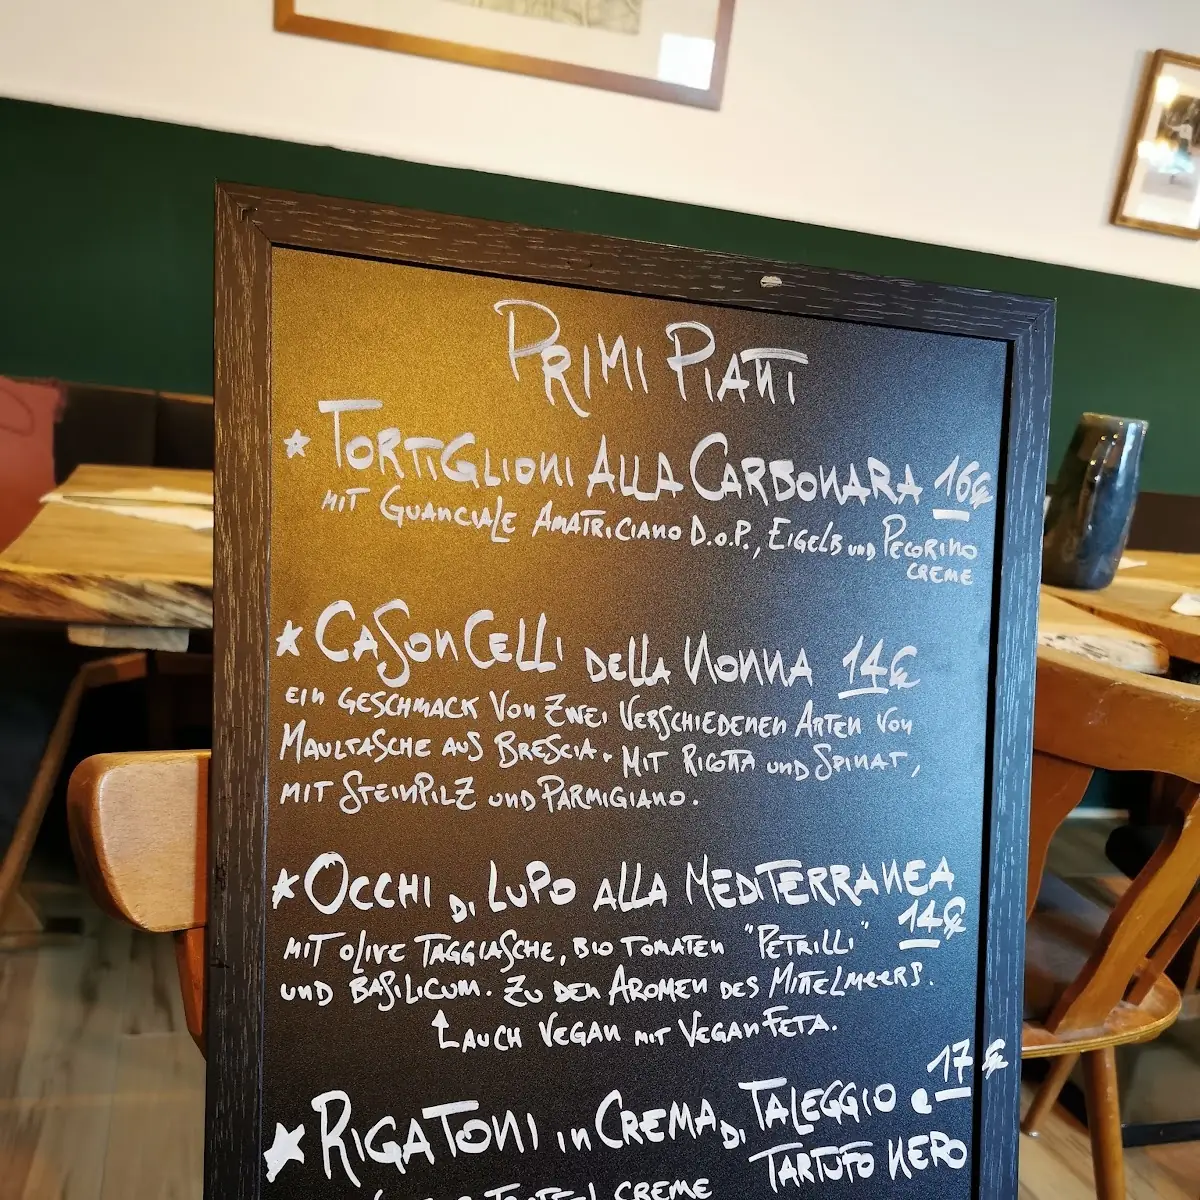 PRIMI PIATTI
★ TORTIGLIONI ALLA CARBONARA 16€
MIT GUANCIALE AMATRICIANO D.O.P., EIGELB UND PECORINO
CREME
★ CASONCELLI DELLA NONNA 14€
EIN GESCHMACK VON ZWEI VERSCHIEDENEN ARTEN VON
MAULTASCHE AUS BRESCIA. MIT RICOTTA UND SPINAT,
MIT STEINPILZ UND PARMIGIANO.
★ OCCHI DI LUPO ALLA MEDITERRANEA
14€
MIT OLIVE TAGGIASCHE, BIO TOMATEN "PETRILLI"
UND BASILICUM. ZU DEN AROMEN DES MITTELMEERS.
↑ AUCH VEGAN MIT VEGANFETA.
17€
★ RIGATONI IN CREMA DI TALEGGIO e
TARTUFO NERO
CREME